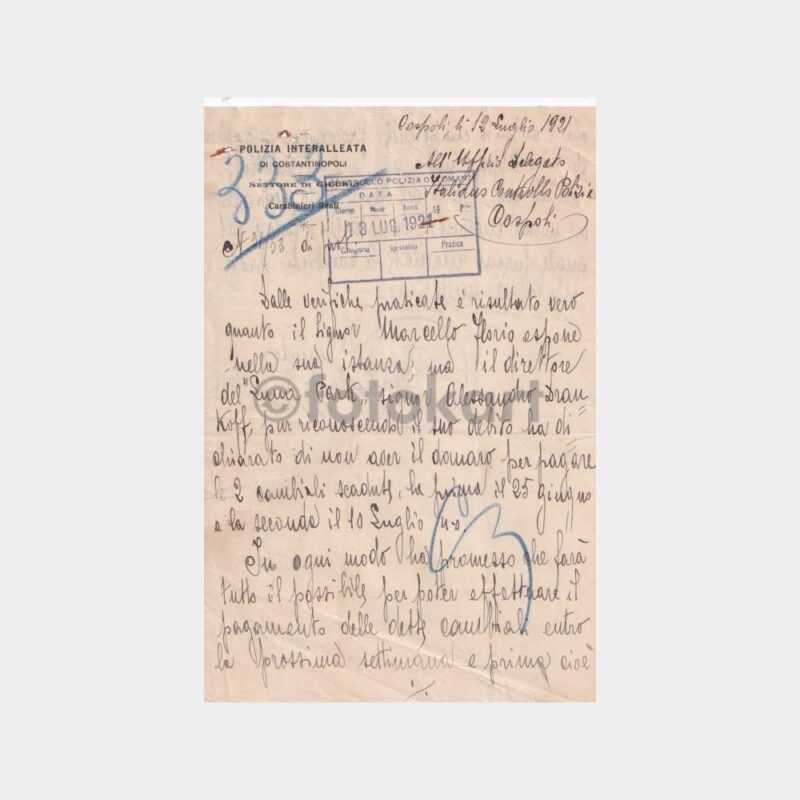 Cospoli li 12 Luglio 1921
POLIZIA INTERALLEATA
DI COSTANTINOPOLI
SETTORE DI
Carabinieri Reali
333
All' Ufficio Delegato
Italiano Controllo Polizia
Cospoli
CONTROLLO POLIZIA OTTOMANA
DATA
Giorno Mese Anno
13 LUG. 1921
Categoria Specialità Pratica
di prot.
Dalle verifiche praticate è risultato vero
quanto il Signor Marcello Florio espone
nella sua istanza, ma il direttore
del "Luna Park", signor Alessandro Dran
Koff, pur riconoscendo il suo debito ha di=
chiarato di non aver il danaro per pagare
le 2 cambiali scadute, la prima il 25 giugno
e la seconda il 10 Luglio
In ogni modo ha promesso che farà
tutto il possibile per poter effettuare il
pagamento delle dette cambiali entro
la prossima settimana e prima cioè
./.
©fotokart